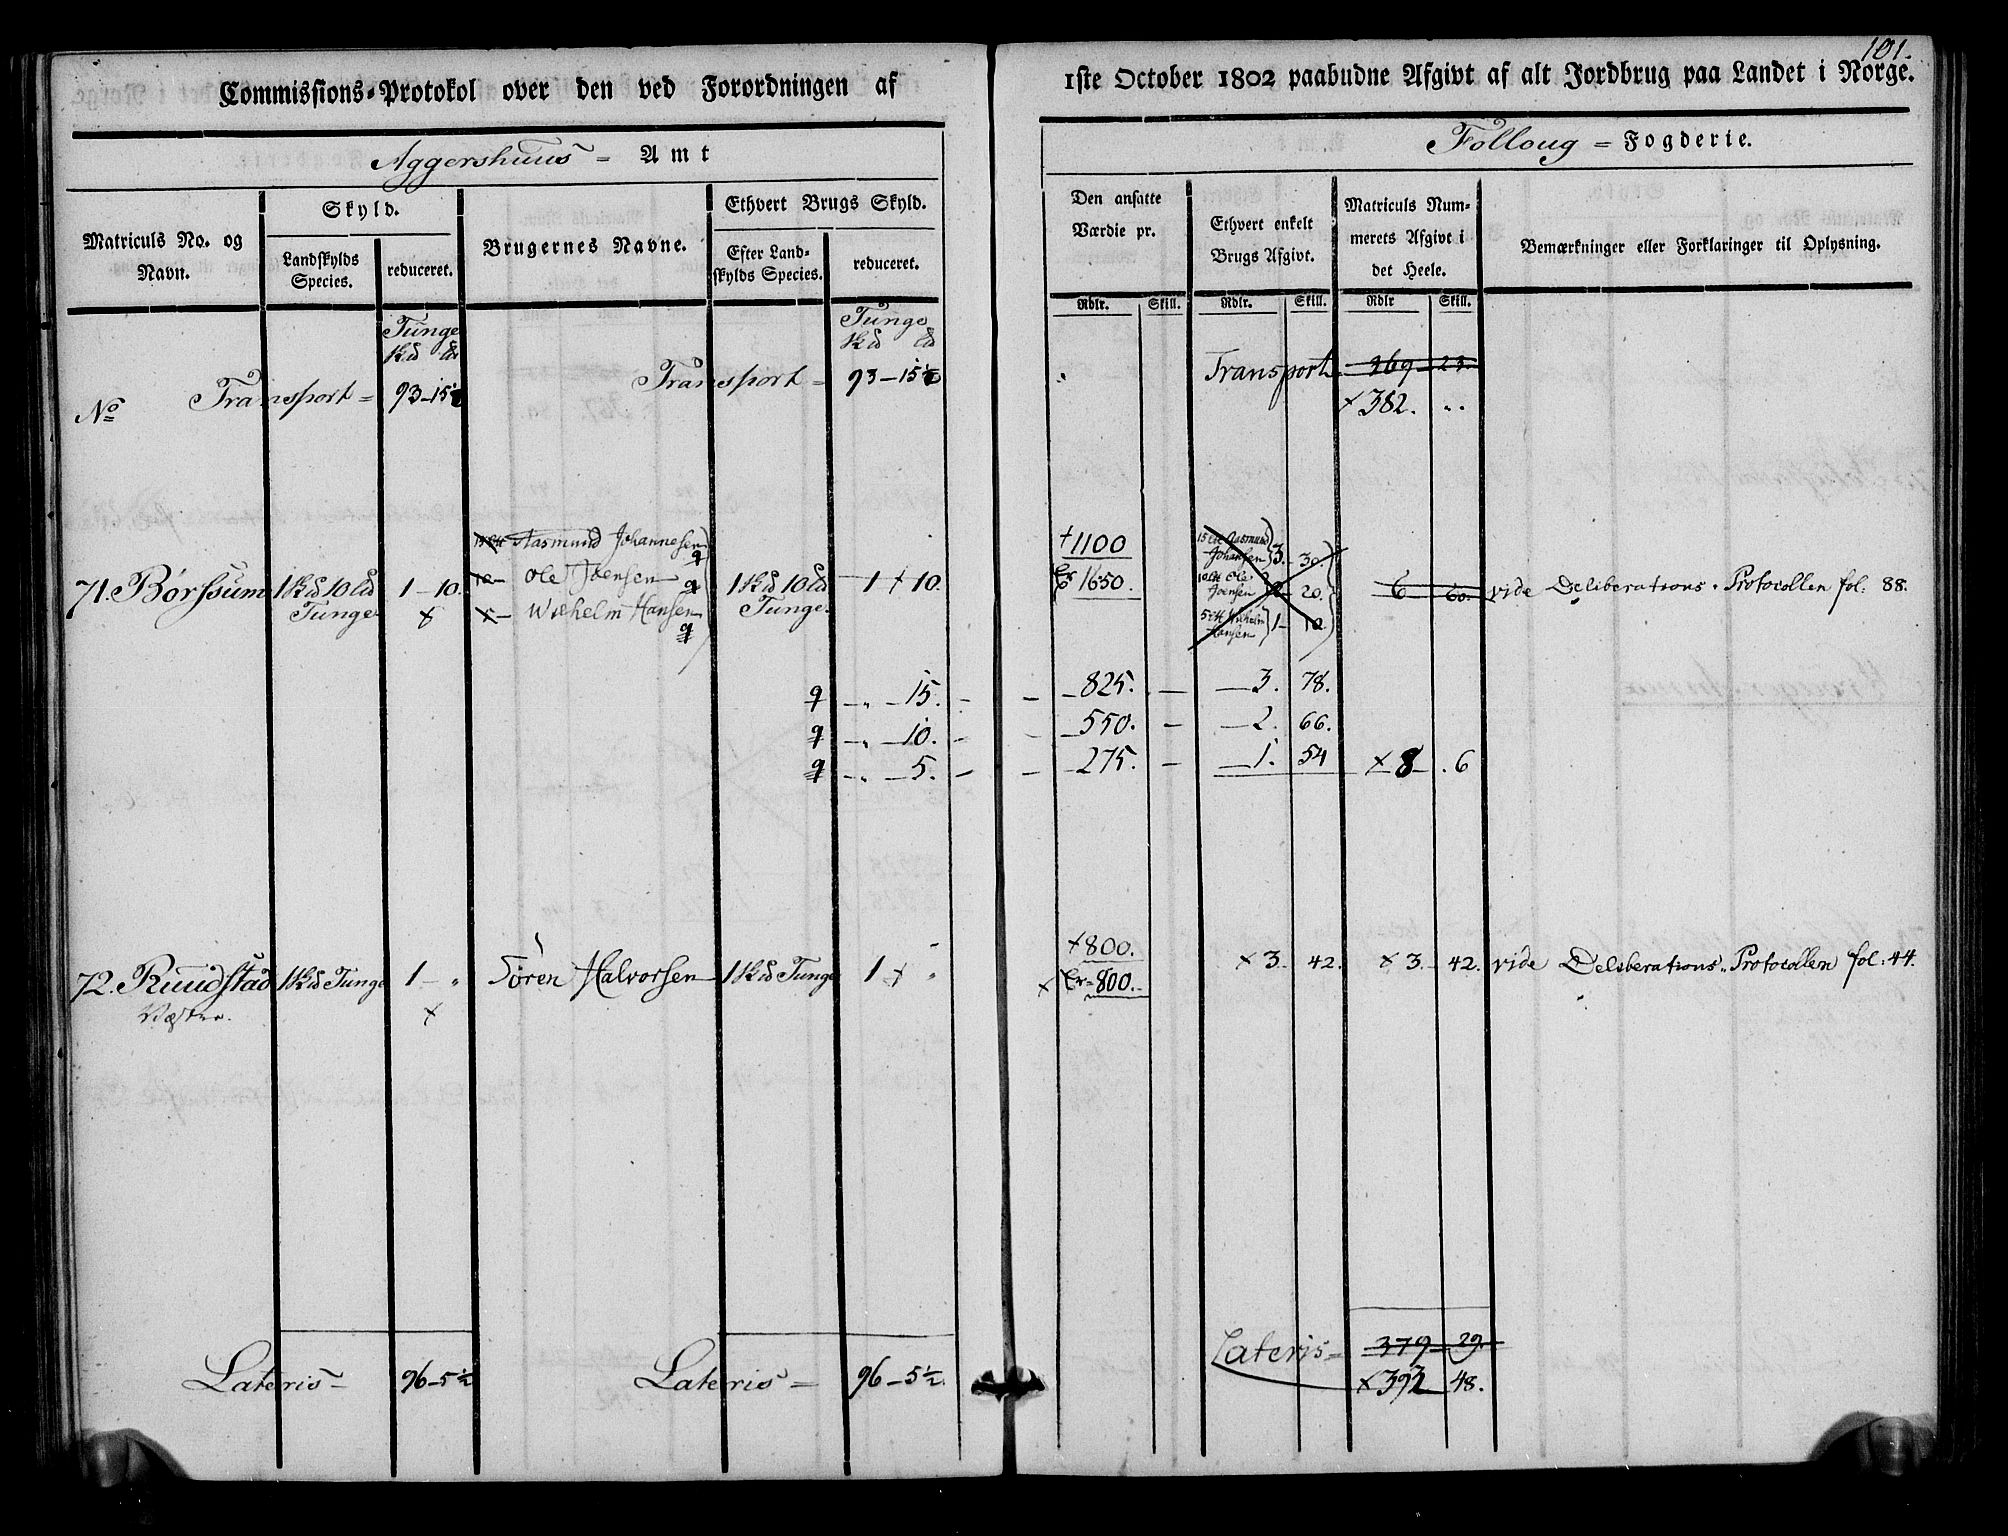 101.
Commissions-Protokol over den ved Forordningen af 1ste October 1802 paabudne Afgivt af alt Jordbrug paa Landet i Norge.
Aggershuus = Amt
Folloug = Fogderie.
Matriculs No. og Navn.
Skyld.
Landskylds Species.
reduceret.
Brugernes Navne.
Ethvert Brugs Skyld.
Efter Land-skylds Species.
reduceret.
Den ansatte Værdie pr.
Ethvert enkelt Brugs Afgivt.
Matriculs Num-merets Afgivt i det Heele.
Bemærkninger eller Forklaringer til Oplysning.
Rdlr. Skill. Rdlr. Skill. Rdlr Skill.
Tunge Tunge
No Transport = 93-15½ Transport = 93-15½ Transport 369 23.
× 382. „.
Aasmund Johannesen +1100 15 Aasmund Johansen 3. 30.
71. Børssum 1 10 Tunge 1-10. 10 Ole Joensen 1 10 Tunge 1 × 10. 1650. 10 Ole Joensen 2 20. 6 60. vide Deliberations-Protocollen fol: 88.
Wilhelm Hansen 5 Wilhelm Hansen 1- 10
„ 15. 825. 3. 78.
„ 10. 550. 2. 66.
„ 5. 275. 1. 54 × 8 . 6
+800.
72. Ruudstad 1 Tunge 1 - „ Søren Halvorsen 1 Tunge 1 × „ × 800. × 3. 42. × 3. 42. vide Deliberations-Protocollen fol: 44.
Væstre.
Lateris - 96-5½ Lateris = 96-5½. Lateris = 379 29.
× 392 48.